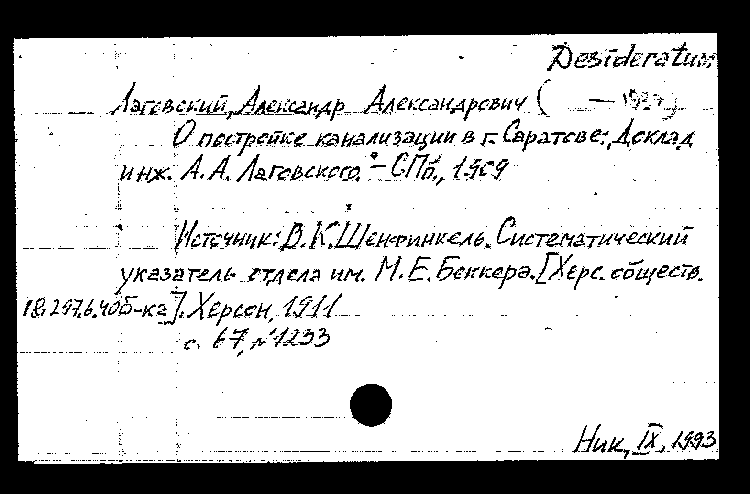 Desideratum
Лаговский, Александр Александрович ( —
О постройке канализации в г. Саратове: Доклад
инж. А.А. Лаговского. – СПб., 1909
Источник: В.К. Шенфинкель. Систематический
указатель отдела им. М.Е. Беккера. [Херс. обществ.
18.297.6.40 б-ка]. Херсон, 1911
с. 67, №1233
Ник, IX, 1993